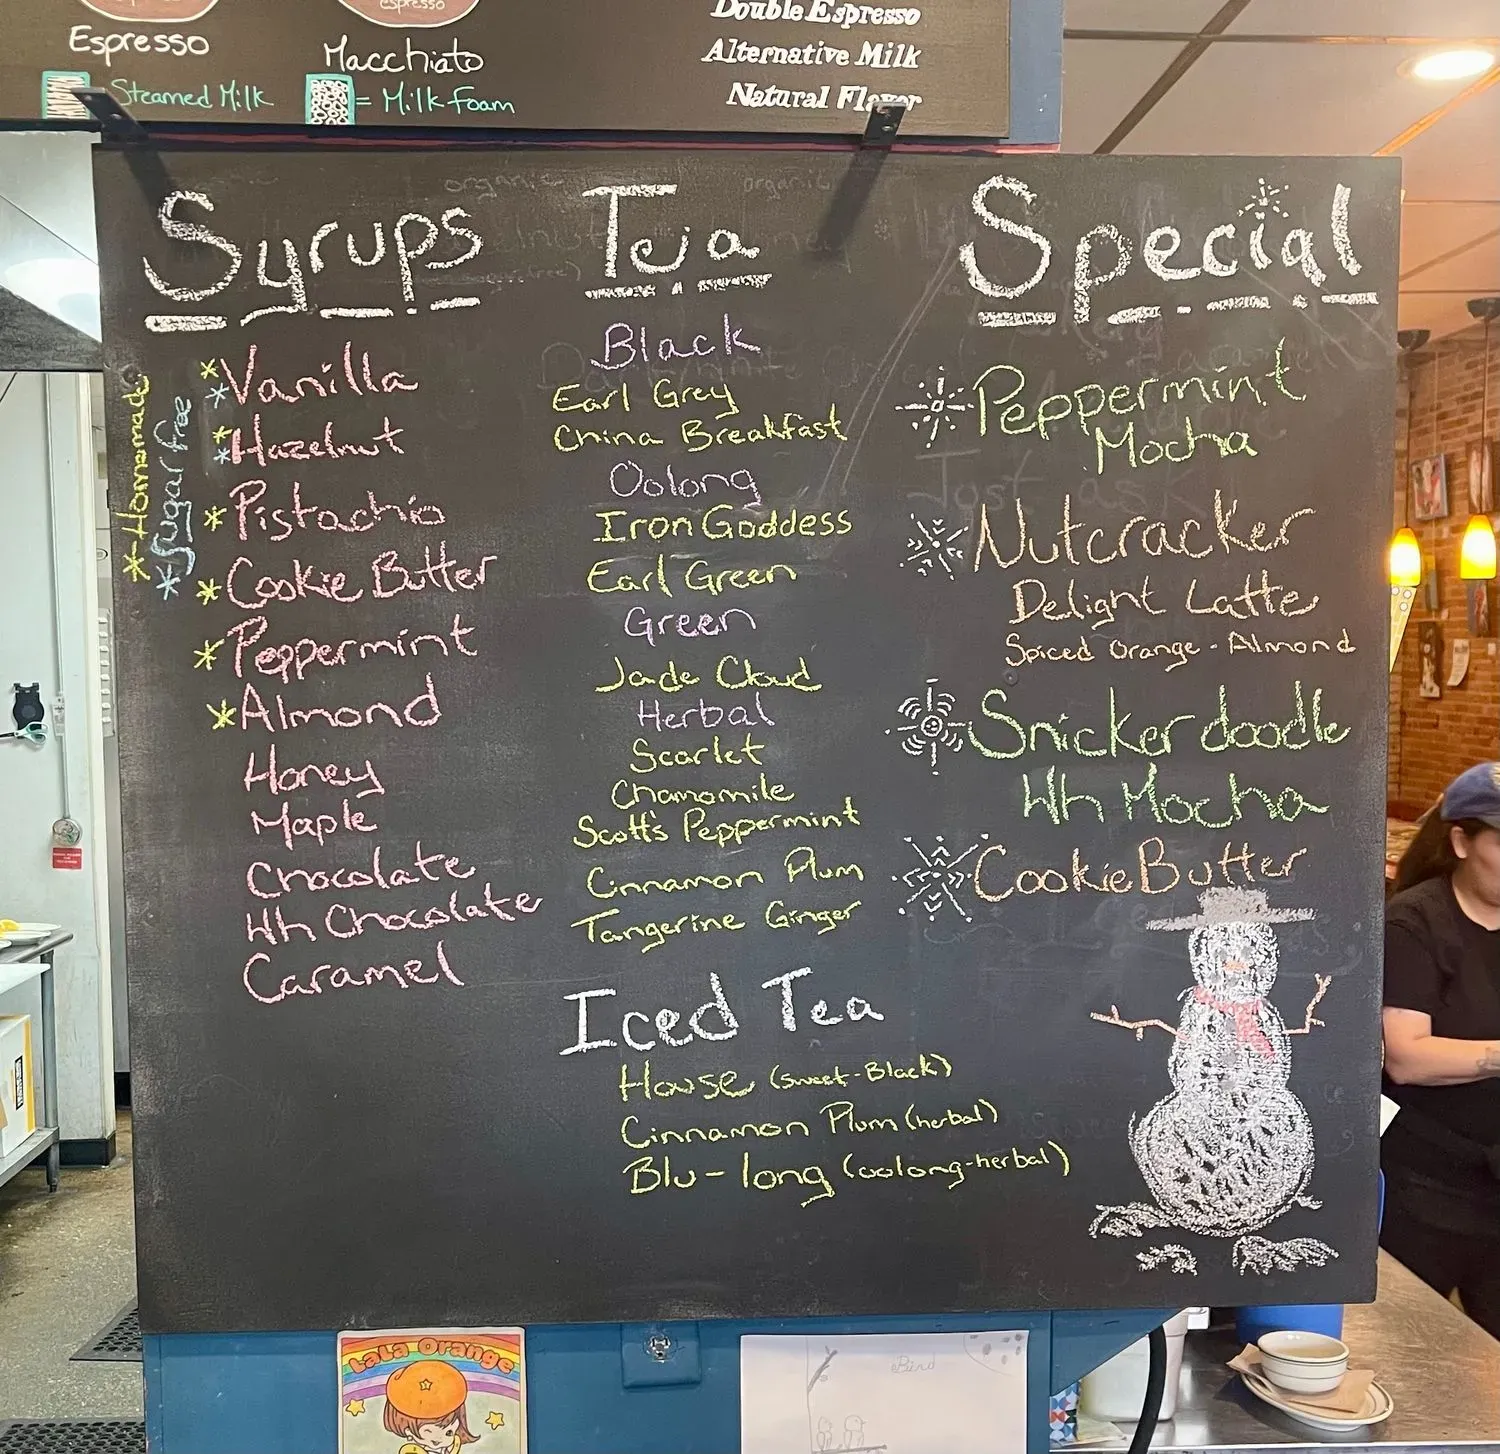 espresso
Espresso
Macchiato
Steamed Milk
= Milk Foam
Double Espresso
Alternative Milk
Natural Flavor
Syrups
* Homemade
* Sugar free
* * Vanilla
* * Hazelnut
* Pistachio
* Cookie Butter
* Peppermint
* Almond
Honey
Maple
Chocolate
Wh Chocolate
Caramel
Tea
Black
Earl Grey
China Breakfast
Oolong
Iron Goddess
Earl Green
Green
Jade Cloud
Herbal
Scarlet
Chamomile
Scott's Peppermint
Cinnamon Plum
Tangerine Ginger
Iced Tea
House (sweet-Black)
Cinnamon Plum (herbal)
Blu-long (oolong-herbal)
Special
Peppermint
Mocha
Nutcracker
Delight Latte
Spiced Orange - Almond
Snickerdoodle
Wh Mocha
Cookie Butter
LaLa Orange
Bird